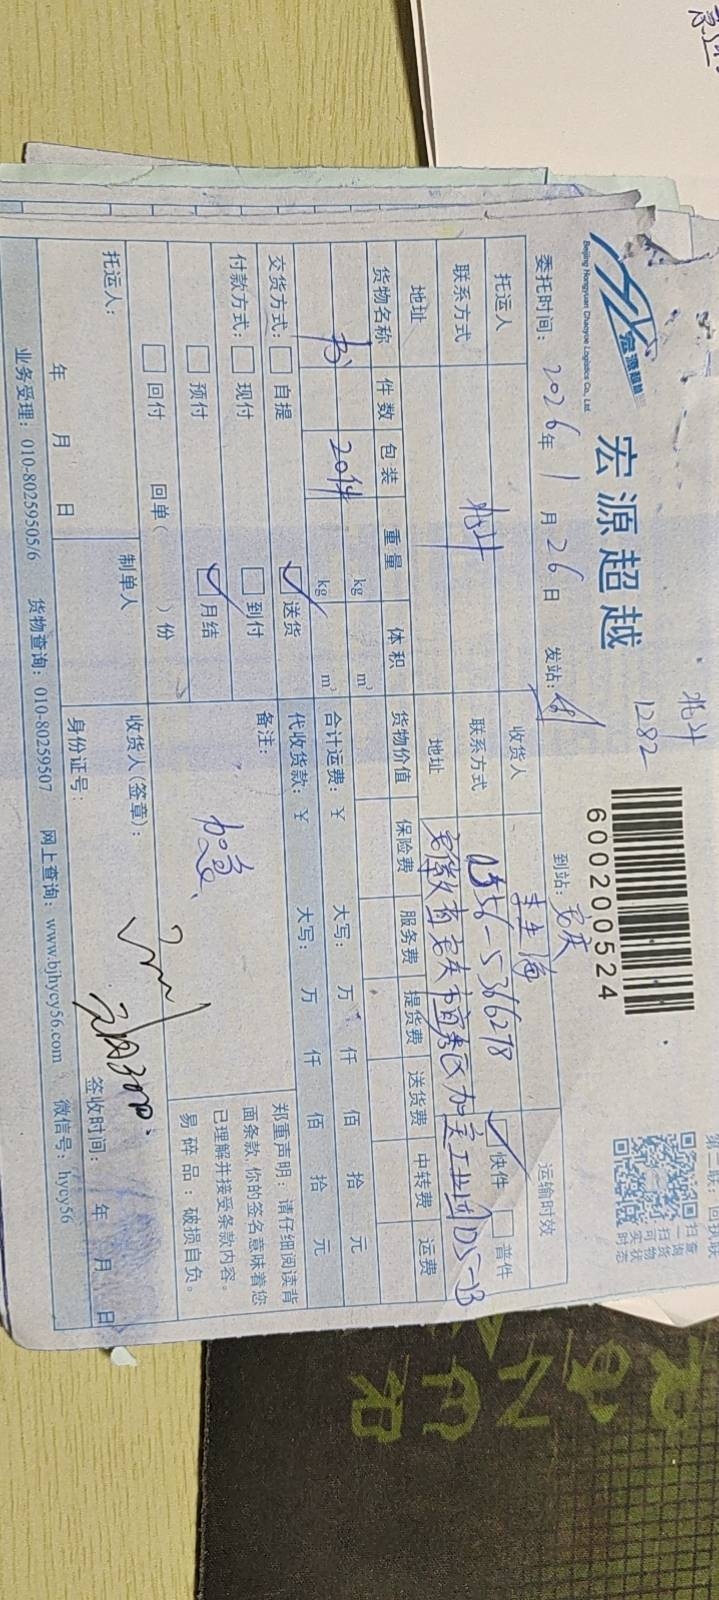 北斗
1282
第二联：回执联
宏源超越
宏源超越
Beijing Hongyuan Chaoyue Logistics Co., Ltd.
600200524
扫一扫可实时
查询货物状态
委托时间：2026年1月26日 发站： 到站：安庆
托运人 收货人 李生海 运输时效
联系方式 北斗 联系方式 0556-5366278 快件 普件
地址 地址 安徽省安庆市宜秀区 工业园D5-13
货物名称 件数 包装 重量 体积 货物价值 保险费 服务费 提货费 送货费 中转费 运费
书 20件 kg m³ 合计运费：¥ 大写： 万 仟 佰 拾 元
kg m³ 代收货款：¥ 大写： 万 仟 佰 拾 元
交货方式： 自提 送货 备注：
付款方式： 现付 到付 加急
预付 月结
回付 回单（ ）份
郑重声明：请仔细阅读背
面条款，你的签名意味着您
已理解并接受条款内容。
易碎品：破损自负。
托运人： 制单人 收货人（签章）：
年 月 日 身份证号： 签收时间： 年 月 日
业务受理：010-80259505/6 货物查询：010-80259507 网上查询：www.bjhycy56.com 微信号：hycy56